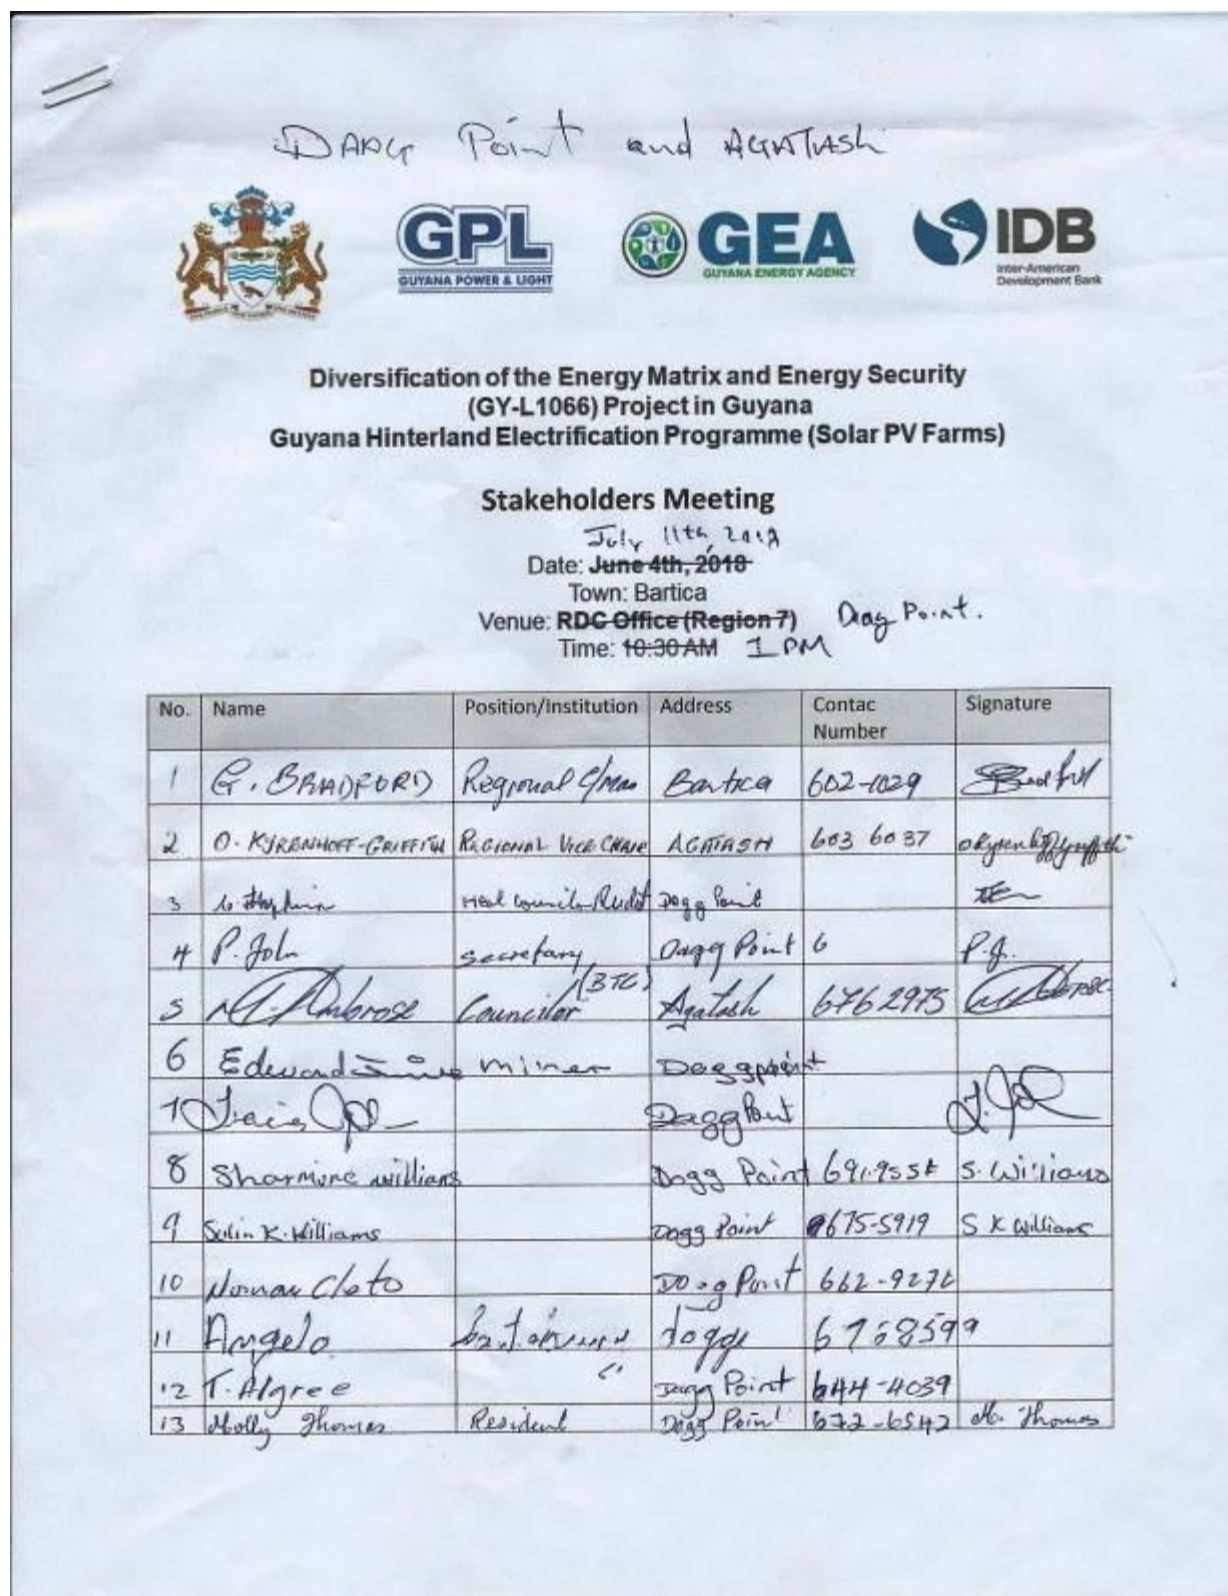 DAAG Point and AGATASH
GPL
GUYANA POWER & LIGHT
GEA
GUYANA ENERGY AGENCY
IDB
Inter-American
Development Bank
Diversification of the Energy Matrix and Energy Security
(GY-L1066) Project in Guyana
Guyana Hinterland Electrification Programme (Solar PV Farms)
Stakeholders Meeting
July 11th, 2018
Date: June 4th, 2018
Town: Bartica
Venue: RDC Office (Region 7) Daag Point.
Time: 10:30 AM 1 PM
No. Name Position/Institution Address Contac Signature
Number
1 G. BRADFORD Regional C/Man Bartica 602-1029
2 O. KYRENHOFF-GRIFFITH REGIONAL VICE CHAIR AGATASH 603 6037
3 Dagg Point
4 P. John Secretary Dagg Point 6 P.J.
5 Ambrose Councilor (BTC) Agatash 6762975
6 Edward miner Daggpoint
7 Dagg Point
8 Sharmine williams Dogg Point S. Williams
9 K. Williams Dogg Point 675-5919 S K Williams
10 Norman Cleto Point 662-9272
11 Angelo
12 T. Algree Dagg Point 644-4039
13 Molly Thomas Resident Dagg Point 672-6542 M. Thomas